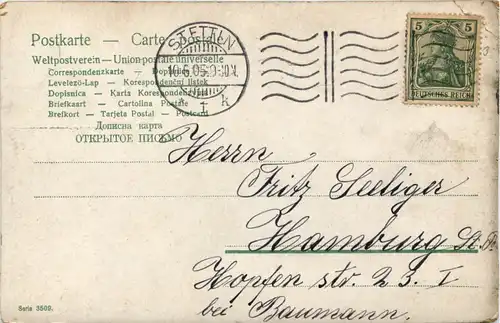 Postkarte — Carte postale
Weltpostverein — Union postale universelle
Correspondenzkarte — Dopisnice
Levelező-Lap — Korespondenční lístek
Dopisnica — Karta Korespondencyjna
Briefkaart — Cartolina Postale
Brefkort — Tarjeta Postal — Postcard
Дописна карта
ОТКРЫТОЕ ПИСЬМО
STETTIN
10.6.05
1 k
5 5
DEUTSCHES REICH
Herrn
Fritz Seeliger
Hamburg St. P.
Hopfen str. 23. I
bei Baumann.
Serie 3509.